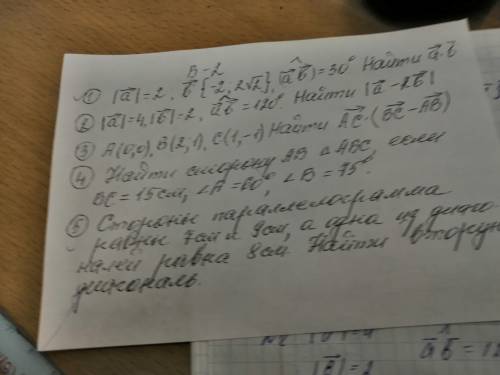 В-2
① |a⃗|=2, b⃗{-2, 2√2}, (a⃗^b⃗)=30° Найти a⃗·b⃗
② |a⃗|=4, |b⃗|=2, a⃗^b⃗=120°. Найти |a⃗-2b⃗|
③ A(0,0), B(2;1), C(1,-1) Найти AC⃗·(BC⃗-AB⃗)
④ Найти сторону AB △ABC, если
BC=15см, ∠A=60°, ∠B=75°.
⑤ Стороны параллелограмма
равны 7см и 9см, а одна из диаго-
налей равна 8см Найти вторую
диагональ.
a⃗^b⃗=12
|b⃗|=2